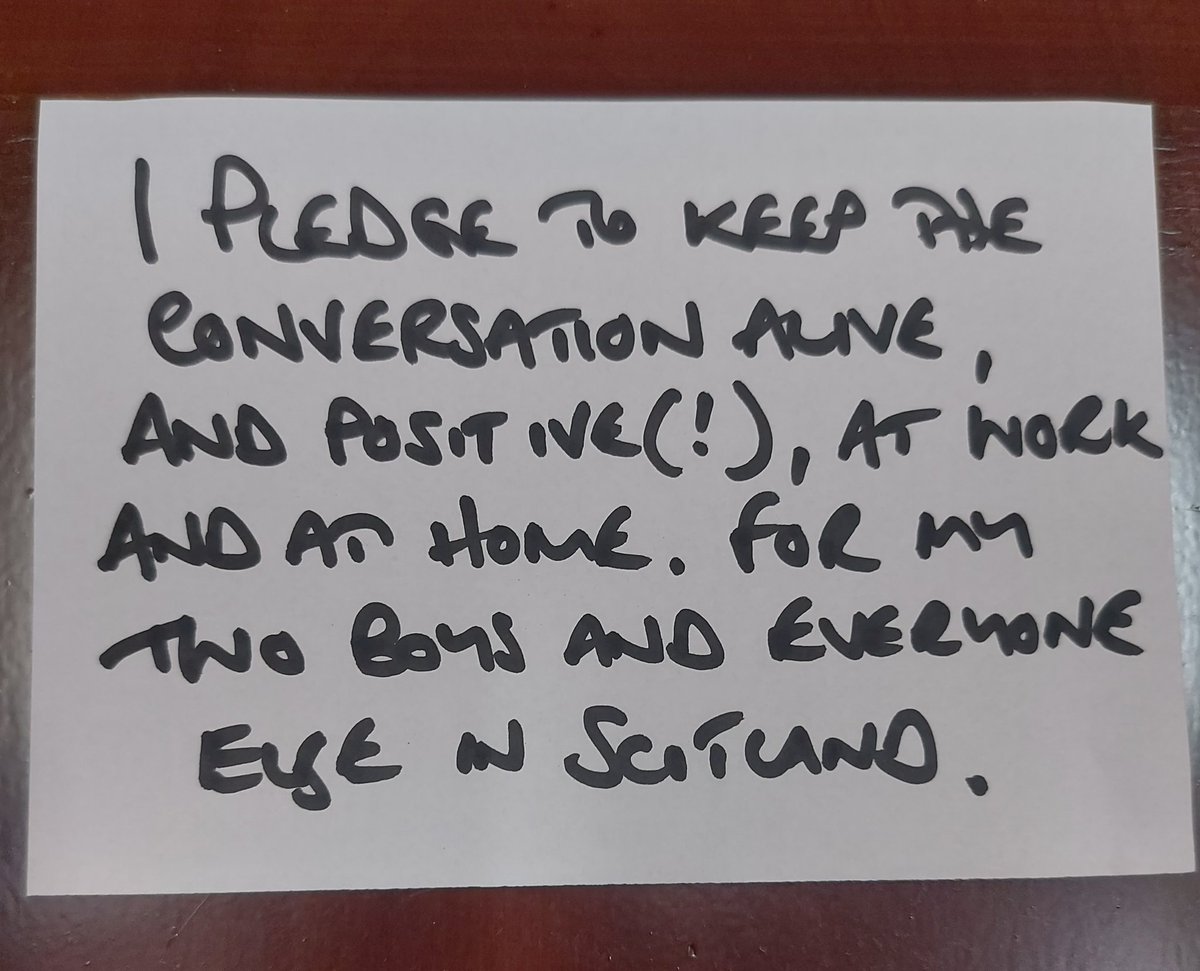 I PLEDGE TO KEEP THE
CONVERSATION ALIVE,
AND POSITIVE(!), AT WORK
AND AT HOME. FOR MY
TWO BOYS AND EVERYONE
ELSE IN SCOTLAND.